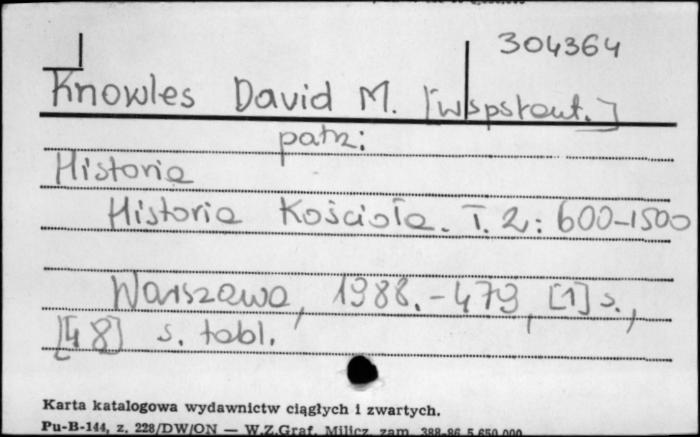 304364
Knowles David M. [współaut.]
patrz:
Historia
Historia Kościoła. T. 2: 600-1500
Warszawa, 1988. - 479, [1] s.,
[48] s. tabl.
Karta katalogowa wydawnictw ciągłych i zwartych.
Pu-B-144, z. 228/DW/ON — W.Z.Graf. Milicz zam. 388-86 5.650.000